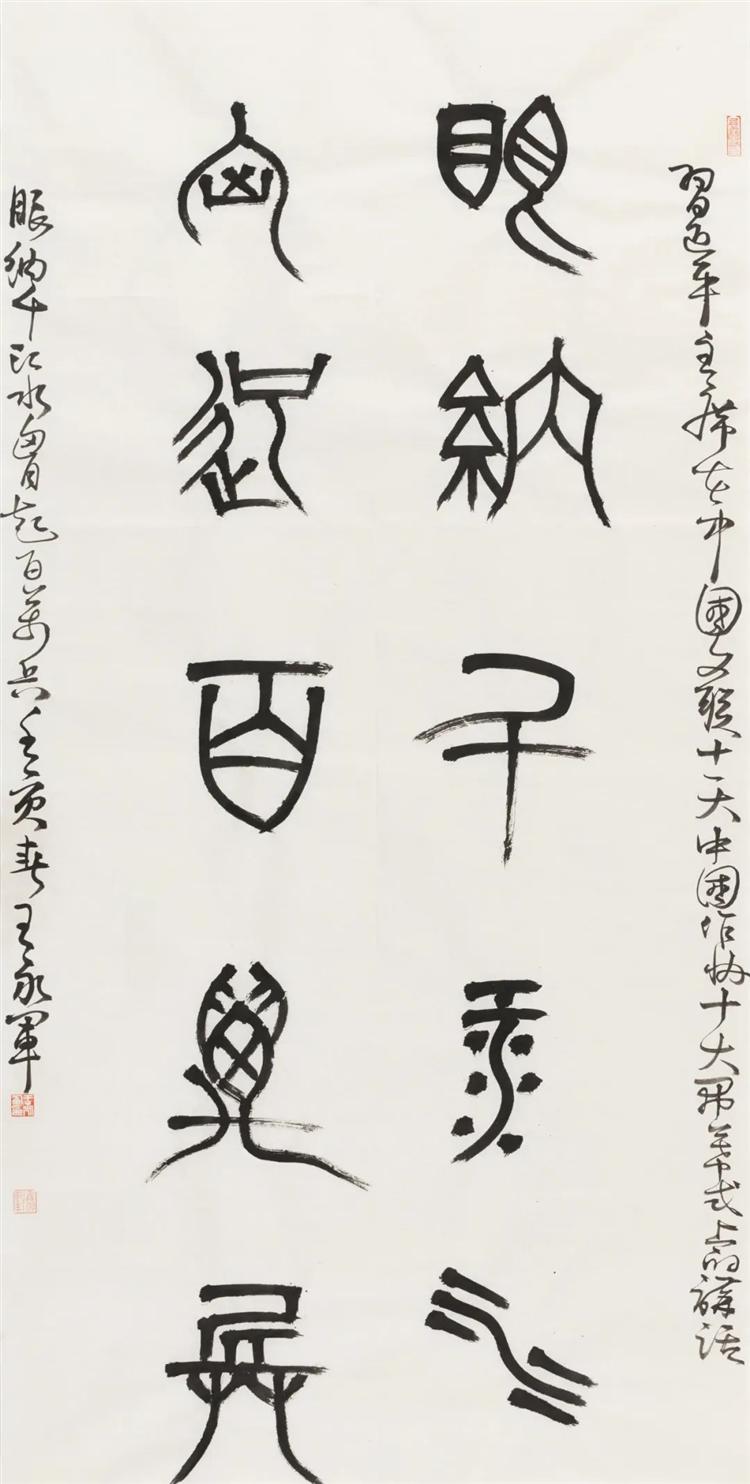 習近平主席在中國文联十一大中國作协十大開幕式上的講話
眼納千江水
匈起百萬兵
眼納千江水胸起百萬兵壬寅春王永軍